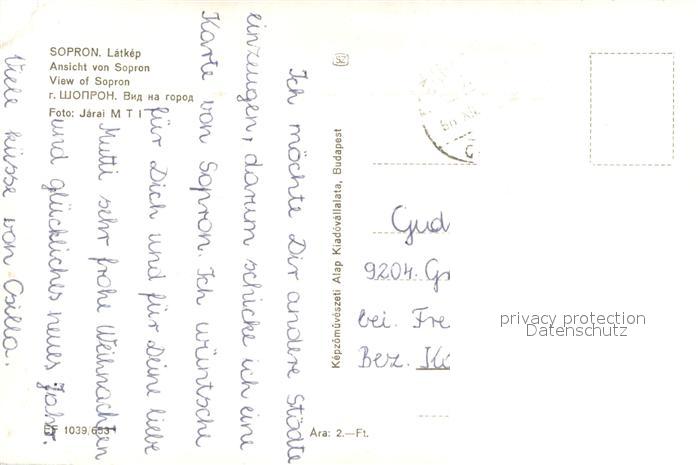 SOPRON. Látkép
Ansicht von Sopron
View of Sopron
г. ШОПРОН. Вид на город
Foto: Járai M T I
Ich möchte Dir andere Städte
einzeugen, darum schicke ich eine
Karte von Sopron. Ich wüntsche
für Dich und für Deine liebe
Mutti sehr frohe Weihnachten
und glückliches neues Jahr.
Viele küsse von Csilla.
Képzőművészeti Alap Kiadóvállalata, Budapest
Gud
9204. Gr
bei. Fre
Bez. Kö
privacy protection
Datenschutz
Ára: 2.—Ft.